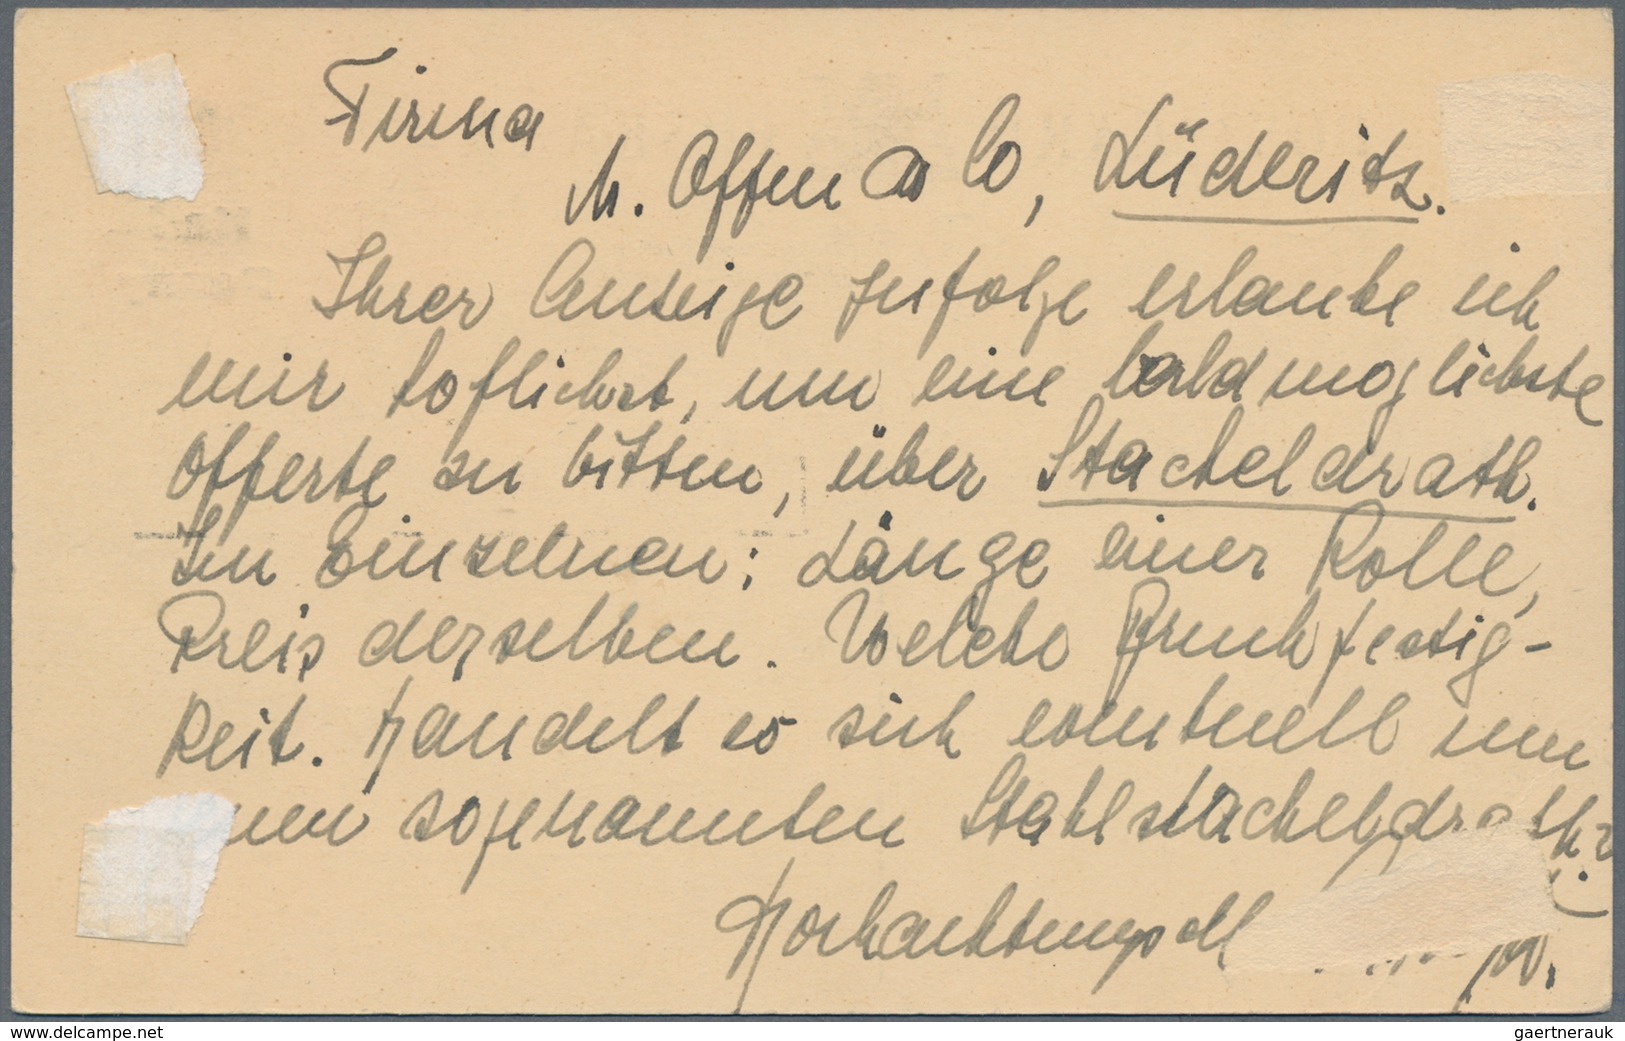 Firma
M. Offen & Co, Lüderitz.
Ihrer Anzeige zufolge erlaube ich
mir höflichst, um eine baldmöglichste
Offerte zu bitten, über Stacheldrath.
Im Einzelnen: Länge einer Rolle,
Preis derselben. Welche Bruchfestig-
keit. Handelt es sich eventuell um
sogenannten Stahlstacheldrath?
Hochachtungsvoll
www.delcampe.net
gaertnerauk